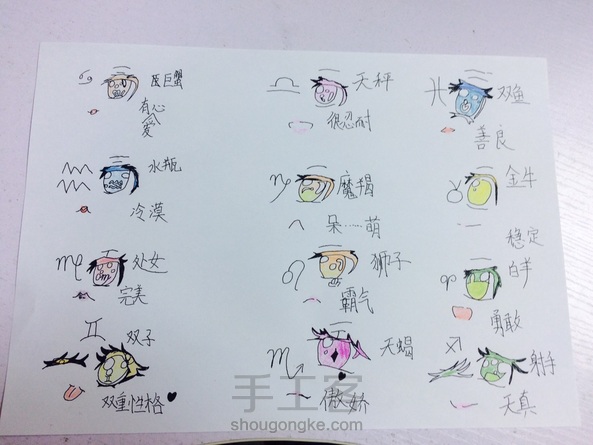 巨蟹
有心
爱
天秤
很忍耐
双鱼
善良
水瓶
冷漠
魔羯
呆……萌
金牛
稳定
处女
完美
狮子
霸气
白羊
勇敢
双子
双重性格
天蝎
傲娇
射手
天真
手工客
shougongke.com